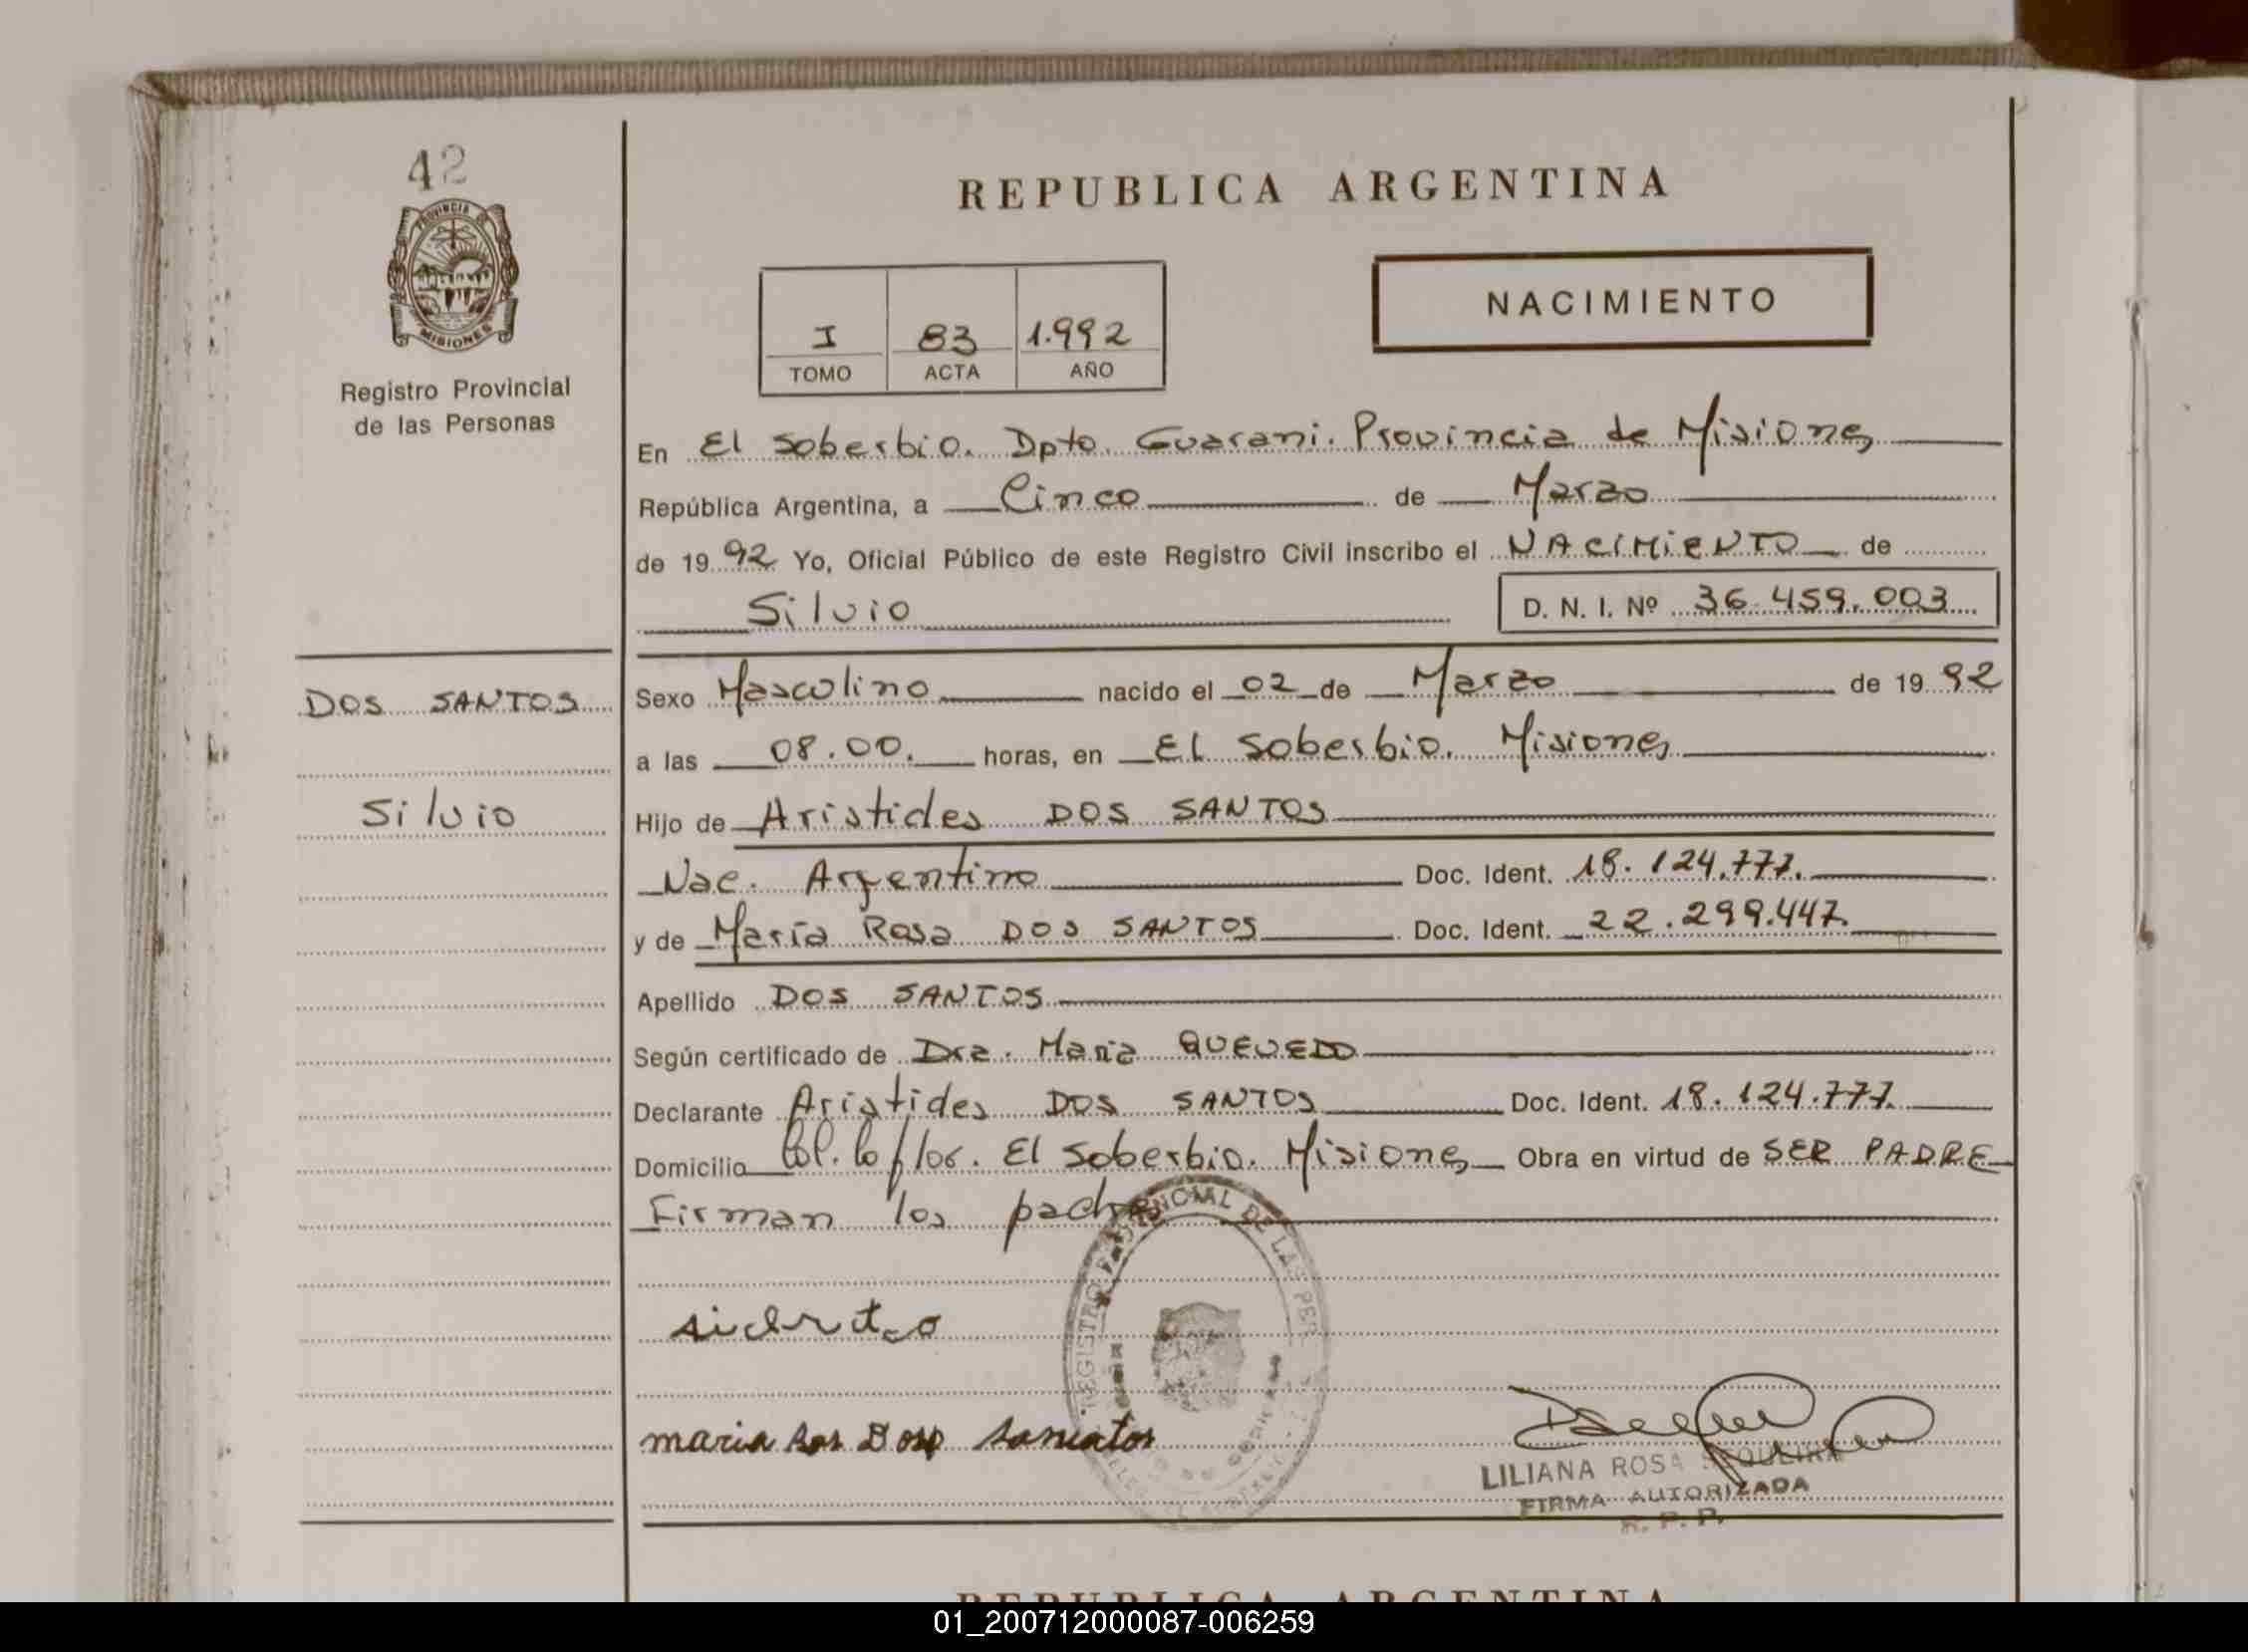 42
PROVINCIA DE
MISIONES
Registro Provincial
de las Personas
DOS SANTOS
Silvio
REPUBLICA ARGENTINA
I 83 1.992
TOMO ACTA AÑO
NACIMIENTO
En El Soberbio. Dpto. Guarani. Provincia de Misiones
República Argentina, a Cinco de Marzo
de 1992 Yo, Oficial Público de este Registro Civil inscribo el NACIMIENTO de
Silvio D. N. I. Nº 36.459.003
Sexo Masculino nacido el 02 de Marzo de 1992
a las 08.00. horas, en El Soberbio. Misiones
Hijo de Aristides DOS SANTOS
Nac. Argentino Doc. Ident. 18.124.777.
y de María Rosa DOS SANTOS Doc. Ident. 22.299.447.
Apellido DOS SANTOS
Según certificado de Dra. Maria QUEVEDO
Declarante Aristides DOS SANTOS Doc. Ident. 18.124.777.
Domicilio El Soberbio. Misiones Obra en virtud de SER PADRE
Firman los padres
REGISTRO PROVINCIAL DE LAS PER
maria
LILIANA ROSA SEQUEIRA
FIRMA AUTORIZADA
R. P. P.
REPUBLICA ARGENTINA
01_200712000087-006259